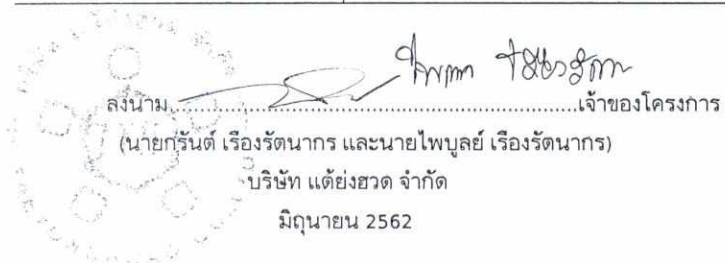 ลงนาม..........................................................เจ้าของโครงการ
(นายกรันต์ เรืองรัตนากร และนายไพบูลย์ เรืองรัตนากร)
บริษัท แต้ย่งฮวด จำกัด
มิถุนายน 2562